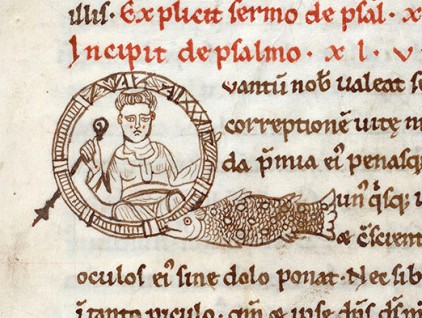 illis. Explicit sermo de psal. x
Incipit de psalmo. x l. v
Qvantū nob̄ ualeat se
correptionē uitę m
da p̄mia ei᾽ penasq
un᾽ q̄sq; u
c̄scient
oculos ei᾽ sine dolo ponat. Nec sib
ī tanto piculo. qm̄ ipse dn̄s